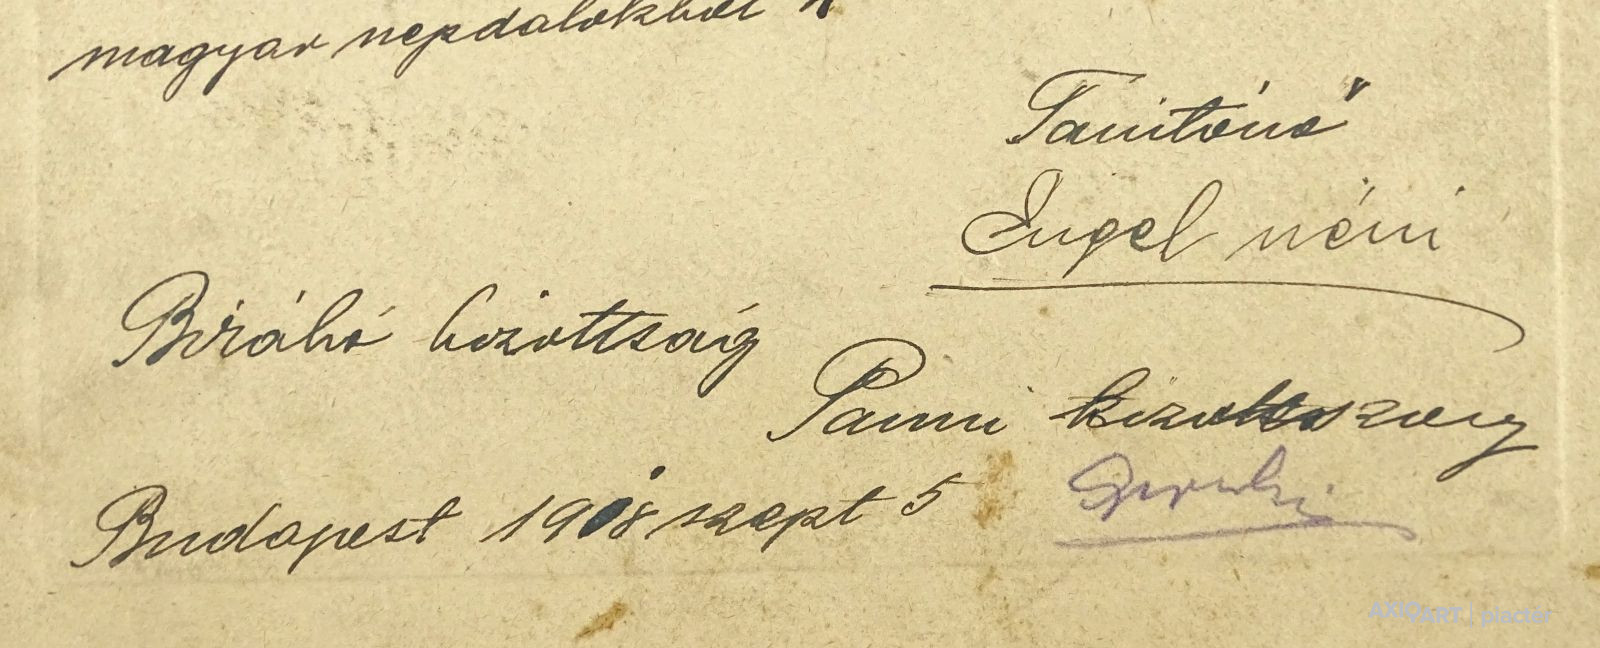 magyar népdalokból
Tanítónő
Engel néni
Biráló bizottság
Panni bizottszag
Budapest 1908 szept 5
AXIOART | placter